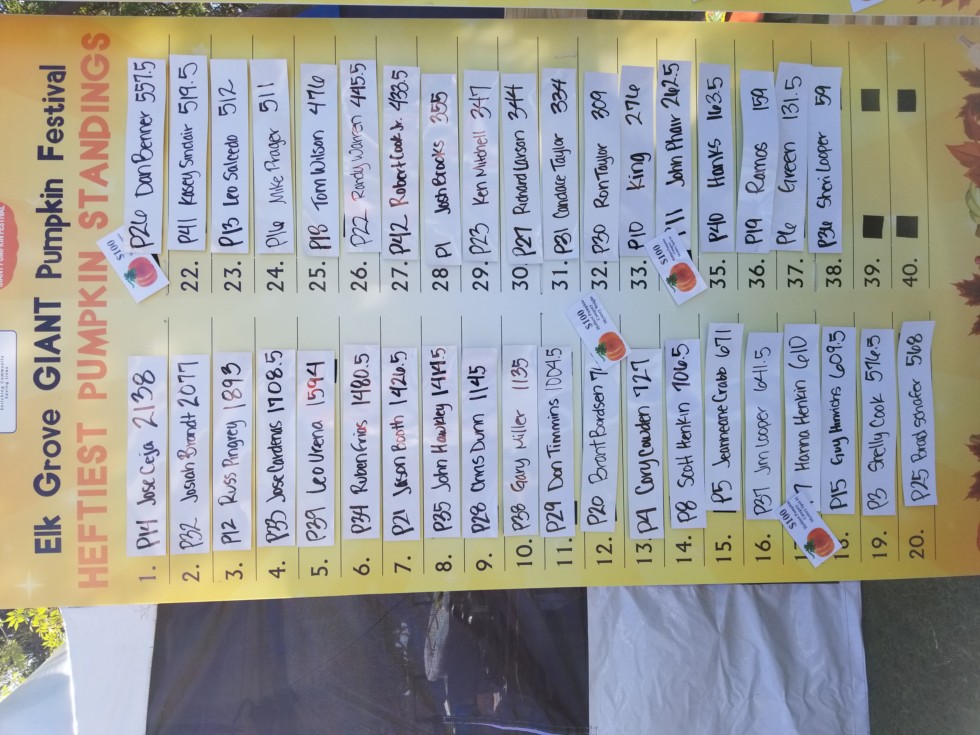 Elk Grove GIANT Pumpkin Festival
HEFTIEST PUMPKIN STANDINGS
1. P14 Jose Ceja 2138
2. P32 Josiah Brandt 2077
3. P12 Russ Pingrey 1893
4. P33 Jose Cardenas 1708.5
5. P39 Leo Urena 1594
6. P34 Ruben Frias 1480.5
7. P21 Jason Booth 1426.5
8. P35 John Hawkley 1414.5
9. P28 Chris Dunn 1145
10. P38 Gary Miller 1135
11. P29 Don Timmins 1004.5
12. P20 Brant Bordsen 71
13. P4 Cory Cowden 727
14. P8 Scott Henkin 706.5
15. P5 Jeanneame Crabb 671
16. P37 Jim Cooper 641.5
7 Hanna Henkin 610
18. P15 Gary Himmons 609.5
19. P3 Shelly Cook 576.5
20. P25 Brad Schafer 568
P26 Dan Benner 557.5
22. P41 Kasey Sinclair 519.5
23. P13 Leo Salcedo 512
24. P16 Mike Prager 511
25. P18 Tom Wilson 476
26. P22 Randy Warren 445.5
27. P42 Robert Cook Jr. 433.5
28 P1 Josh Brooks 355
29. P23 Ken Mitchell 347
30. P27 Richard Larson 344
31. P31 Candace Taylor 334
32. P30 Ron Taylor 309
33. P10 King 276
P11 John Phair 262.5
35. P40 Hanks 163.5
36. P19 Ramos 159
37. P6 Green 131.5
38. P36 Sheri Cooper 59
39.
40.
$100
$100
$100
$100